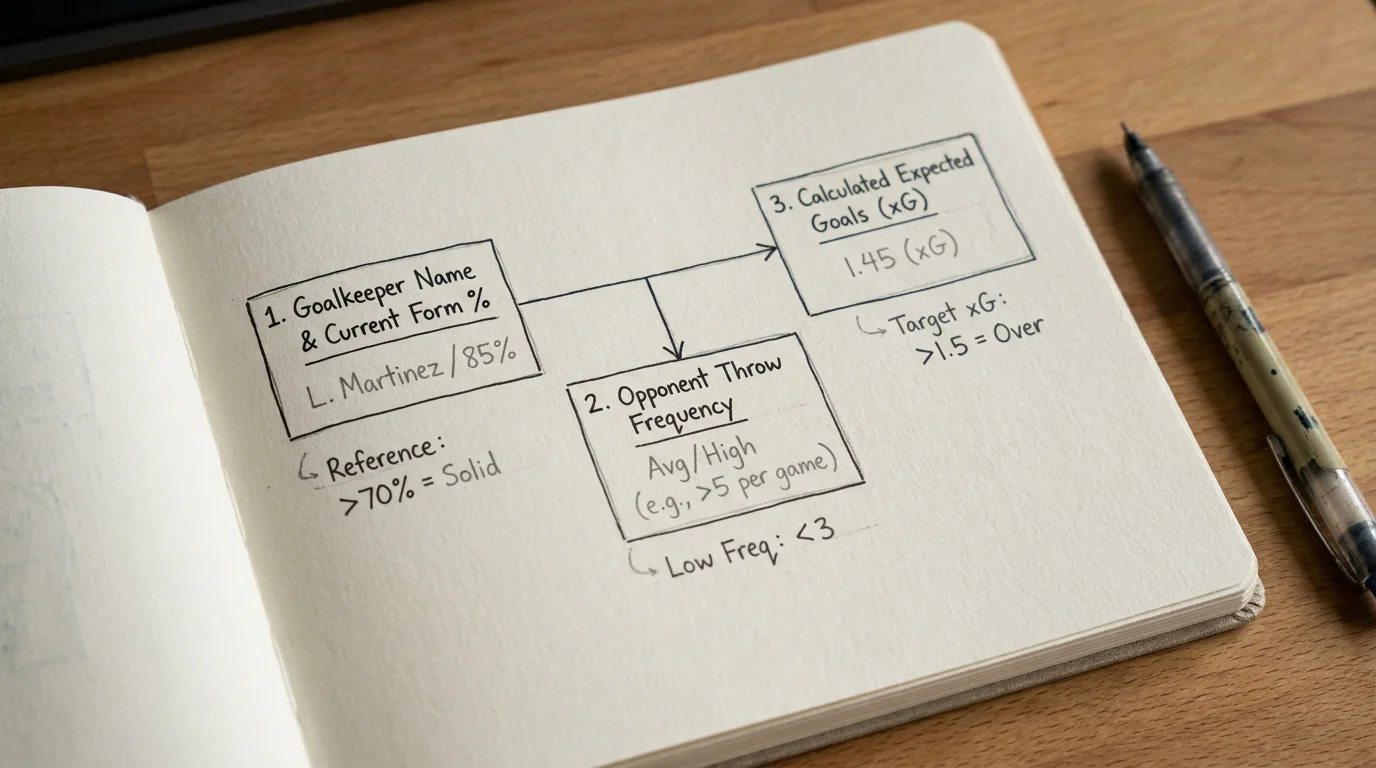 1. Goalkeeper Name
& Current Form %
L. Martinez / 85%
Reference:
>70% = Solid
2. Opponent Throw
Frequency
Avg/High
(e.g., >5 per game)
Low Freq: <3
3. Calculated Expected
Goals (xG)
1.45 (xG)
Target xG:
>1.5 = Over